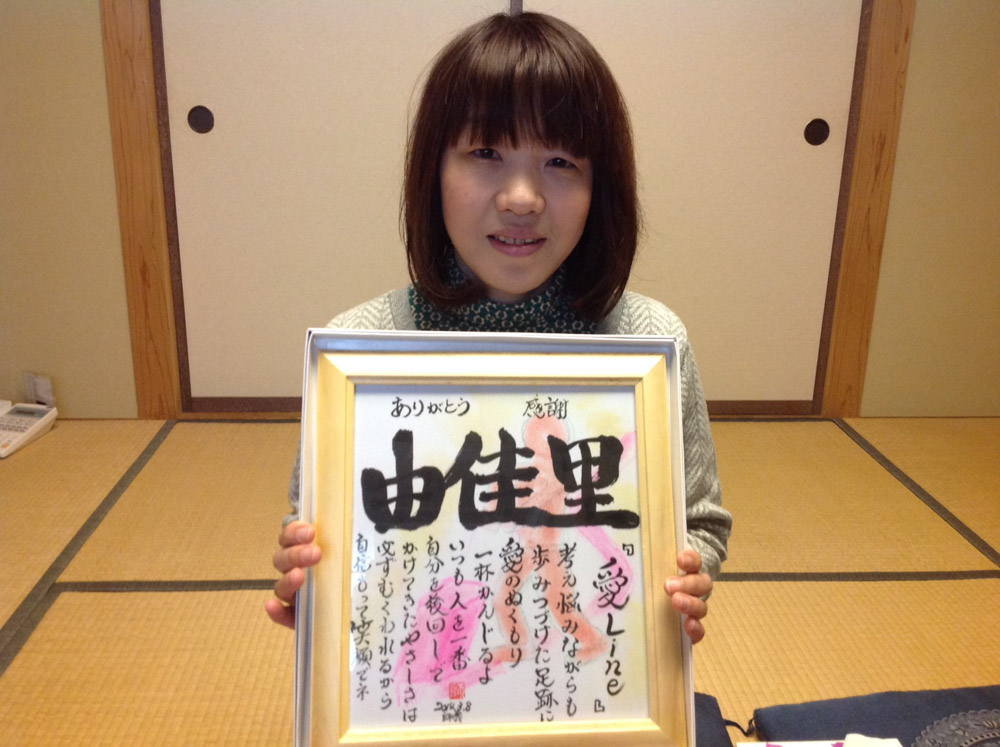 ありがとう 感謝
由佳里
『愛Line』
考え悩みながらも
歩みつづけた足跡に
愛のぬくもり
一杯かんじるよ
いつも人を一番
自分を後回しして
かけてきたやさしさは
必ずむくわれるから
自信もって笑顔でネ
2014.3.8